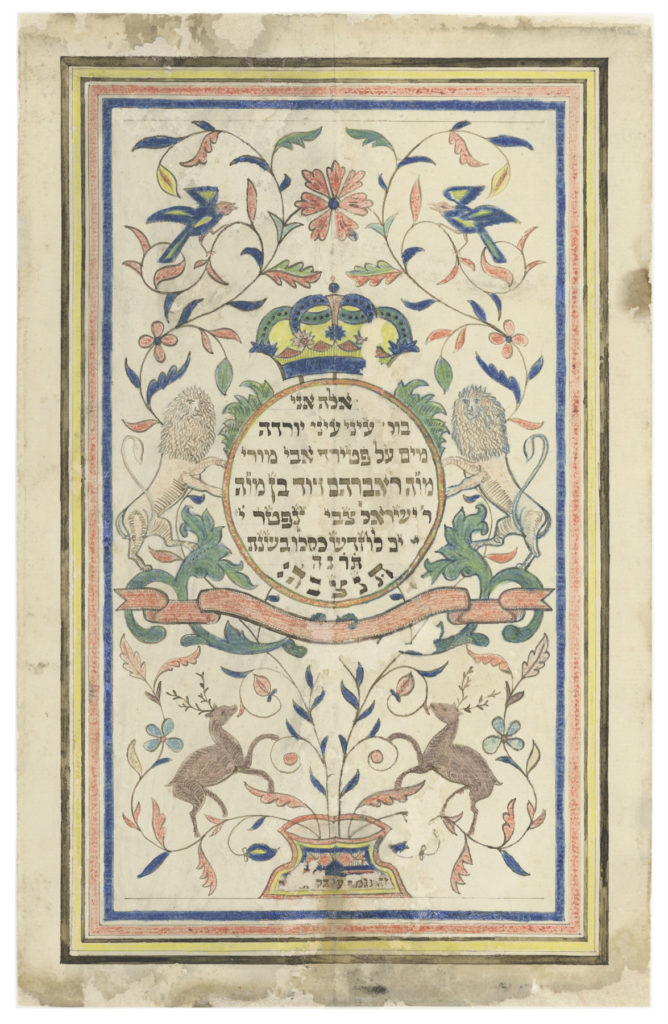 אלה אני
בוכי׳ עיני עיני יורדה
מים על פטירת אבי מורי
מו״ה ר׳ אברהם דוד בן מו״ה
ר׳ ישראל צבי נפטר י׳
יב לחדש כסלו בשנת
תרנה
ת נ צ ב ה